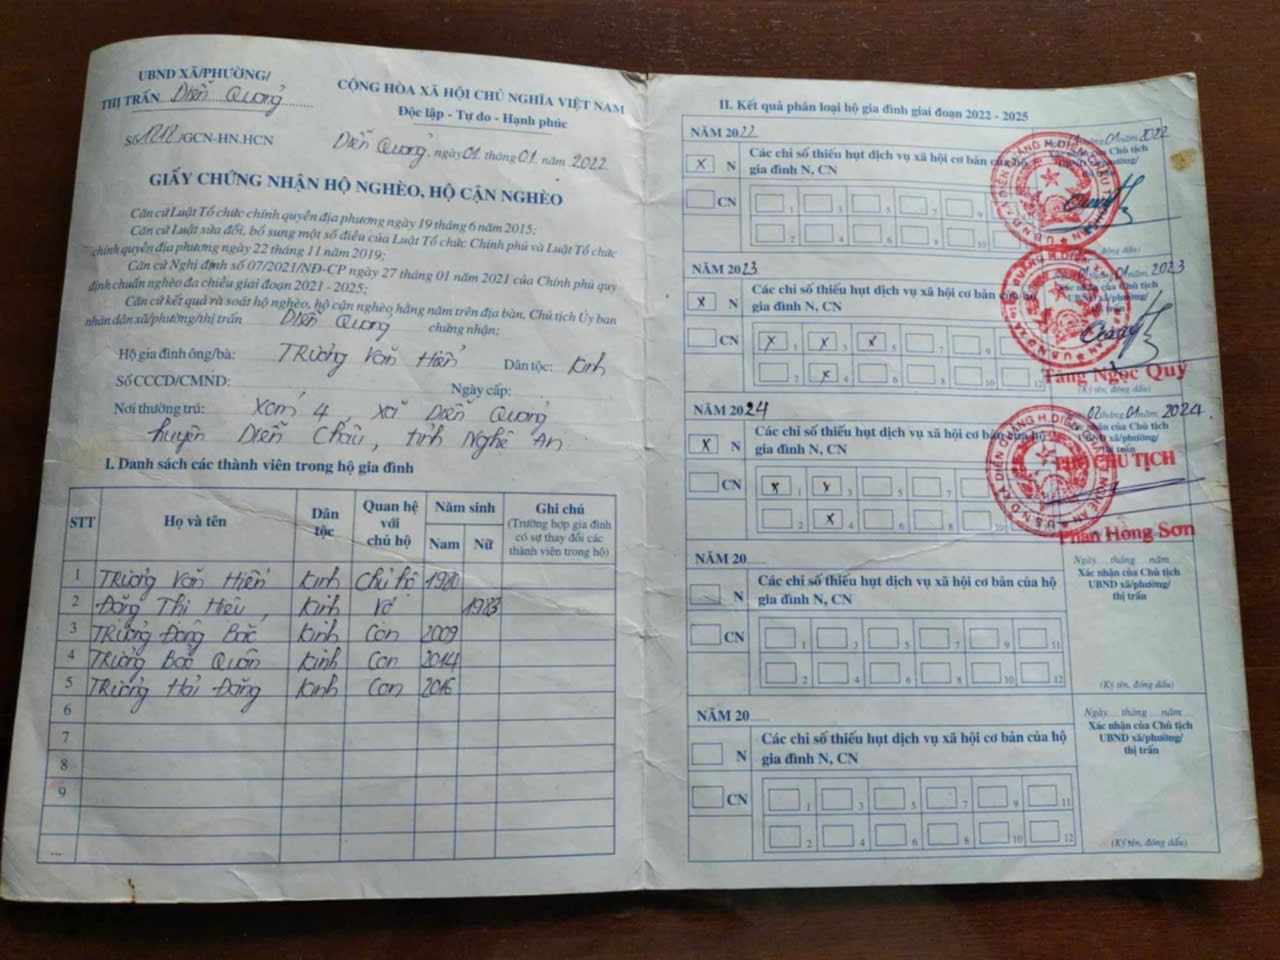 UBND XÃ/PHƯỜNG/
THỊ TRẤN Diễn Quảng
CỘNG HÒA XÃ HỘI CHỦ NGHĨA VIỆT NAM
Độc lập - Tự do - Hạnh phúc
Số 1212/GCN-HN.HCN
Diễn Quảng, ngày 01 tháng 01 năm 2022
GIẤY CHỨNG NHẬN HỘ NGHÈO, HỘ CẬN NGHÈO
Căn cứ Luật Tổ chức chính quyền địa phương ngày 19 tháng 6 năm 2015;
Căn cứ Luật sửa đổi, bổ sung một số điều của Luật Tổ chức Chính phủ và Luật Tổ chức
chính quyền địa phương ngày 22 tháng 11 năm 2019;
Căn cứ Nghị định số 07/2021/NĐ-CP ngày 27 tháng 01 năm 2021 của Chính phủ quy
định chuẩn nghèo đa chiều giai đoạn 2021 - 2025;
Căn cứ kết quả rà soát hộ nghèo, hộ cận nghèo hằng năm trên địa bàn, Chủ tịch Ủy ban
nhân dân xã/phường/thị trấn Diễn Quảng chứng nhận:
Hộ gia đình ông/bà: Trương Văn Hiển Dân tộc: Kinh
Số CCCD/CMND: Ngày cấp:
Nơi thường trú: Xóm 4, xã Diễn Quảng
huyện Diễn Châu, tỉnh Nghệ An
I. Danh sách các thành viên trong hộ gia đình
STT Họ và tên Dân tộc Quan hệ với chủ hộ Năm sinh Nam Nữ Ghi chú (Trường hợp gia đình có sự thay đổi các thành viên trong hộ)
1 Trương Văn Hiển Kinh Chủ hộ 1980
2 Đặng Thị Hiếu Kinh Vợ 1983
3 Trương Đăng Bắc Kinh Con 2009
4 Trương Bảo Quân Kinh Con 2014
5 Trương Hải Đăng Kinh Con 2016
6
7
8
9
...
II. Kết quả phân loại hộ gia đình giai đoạn 2022 - 2025
NĂM 2022
01 tháng 01 năm 2022
x N
Các chỉ số thiếu hụt dịch vụ xã hội cơ bản của hộ
gia đình N, CN
Xác nhận của Chủ tịch
xã/phường/
CN
1 3 5 7 9
2 4 6 8 10
đóng dấu)
NĂM 2023
01 tháng 01 năm 2023
x N
Các chỉ số thiếu hụt dịch vụ xã hội cơ bản của hộ
gia đình N, CN
nhận của Chủ tịch
UBND xã/phường/
thị trấn
CN
x 1 x 3 x 5 7 9
2 x 4 6 8 10 12
Tăng Ngọc Quý
(Ký tên, đóng dấu)
NĂM 2024
02 tháng 01 năm 2024.
x N
Các chỉ số thiếu hụt dịch vụ xã hội cơ bản của hộ
gia đình N, CN
nhận của Chủ tịch
xã/phường/
thị trấn
PHÓ CHỦ TỊCH
CN
x 1 x 3 5 7
2 x 4 6 8 10
Phan Hồng Sơn
NĂM 20
Ngày ... tháng ... năm ...
N
Các chỉ số thiếu hụt dịch vụ xã hội cơ bản của hộ
gia đình N, CN
Xác nhận của Chủ tịch
UBND xã/phường/
thị trấn
CN
1 3 5 7 9 11
2 4 6 8 10 12
(Ký tên, đóng dấu)
NĂM 20
Ngày ... tháng ... năm ...
N
Các chỉ số thiếu hụt dịch vụ xã hội cơ bản của hộ
gia đình N, CN
Xác nhận của Chủ tịch
UBND xã/phường/
thị trấn
CN
1 3 5 7 9 11
2 4 6 8 10 12
(Ký tên, đóng dấu)